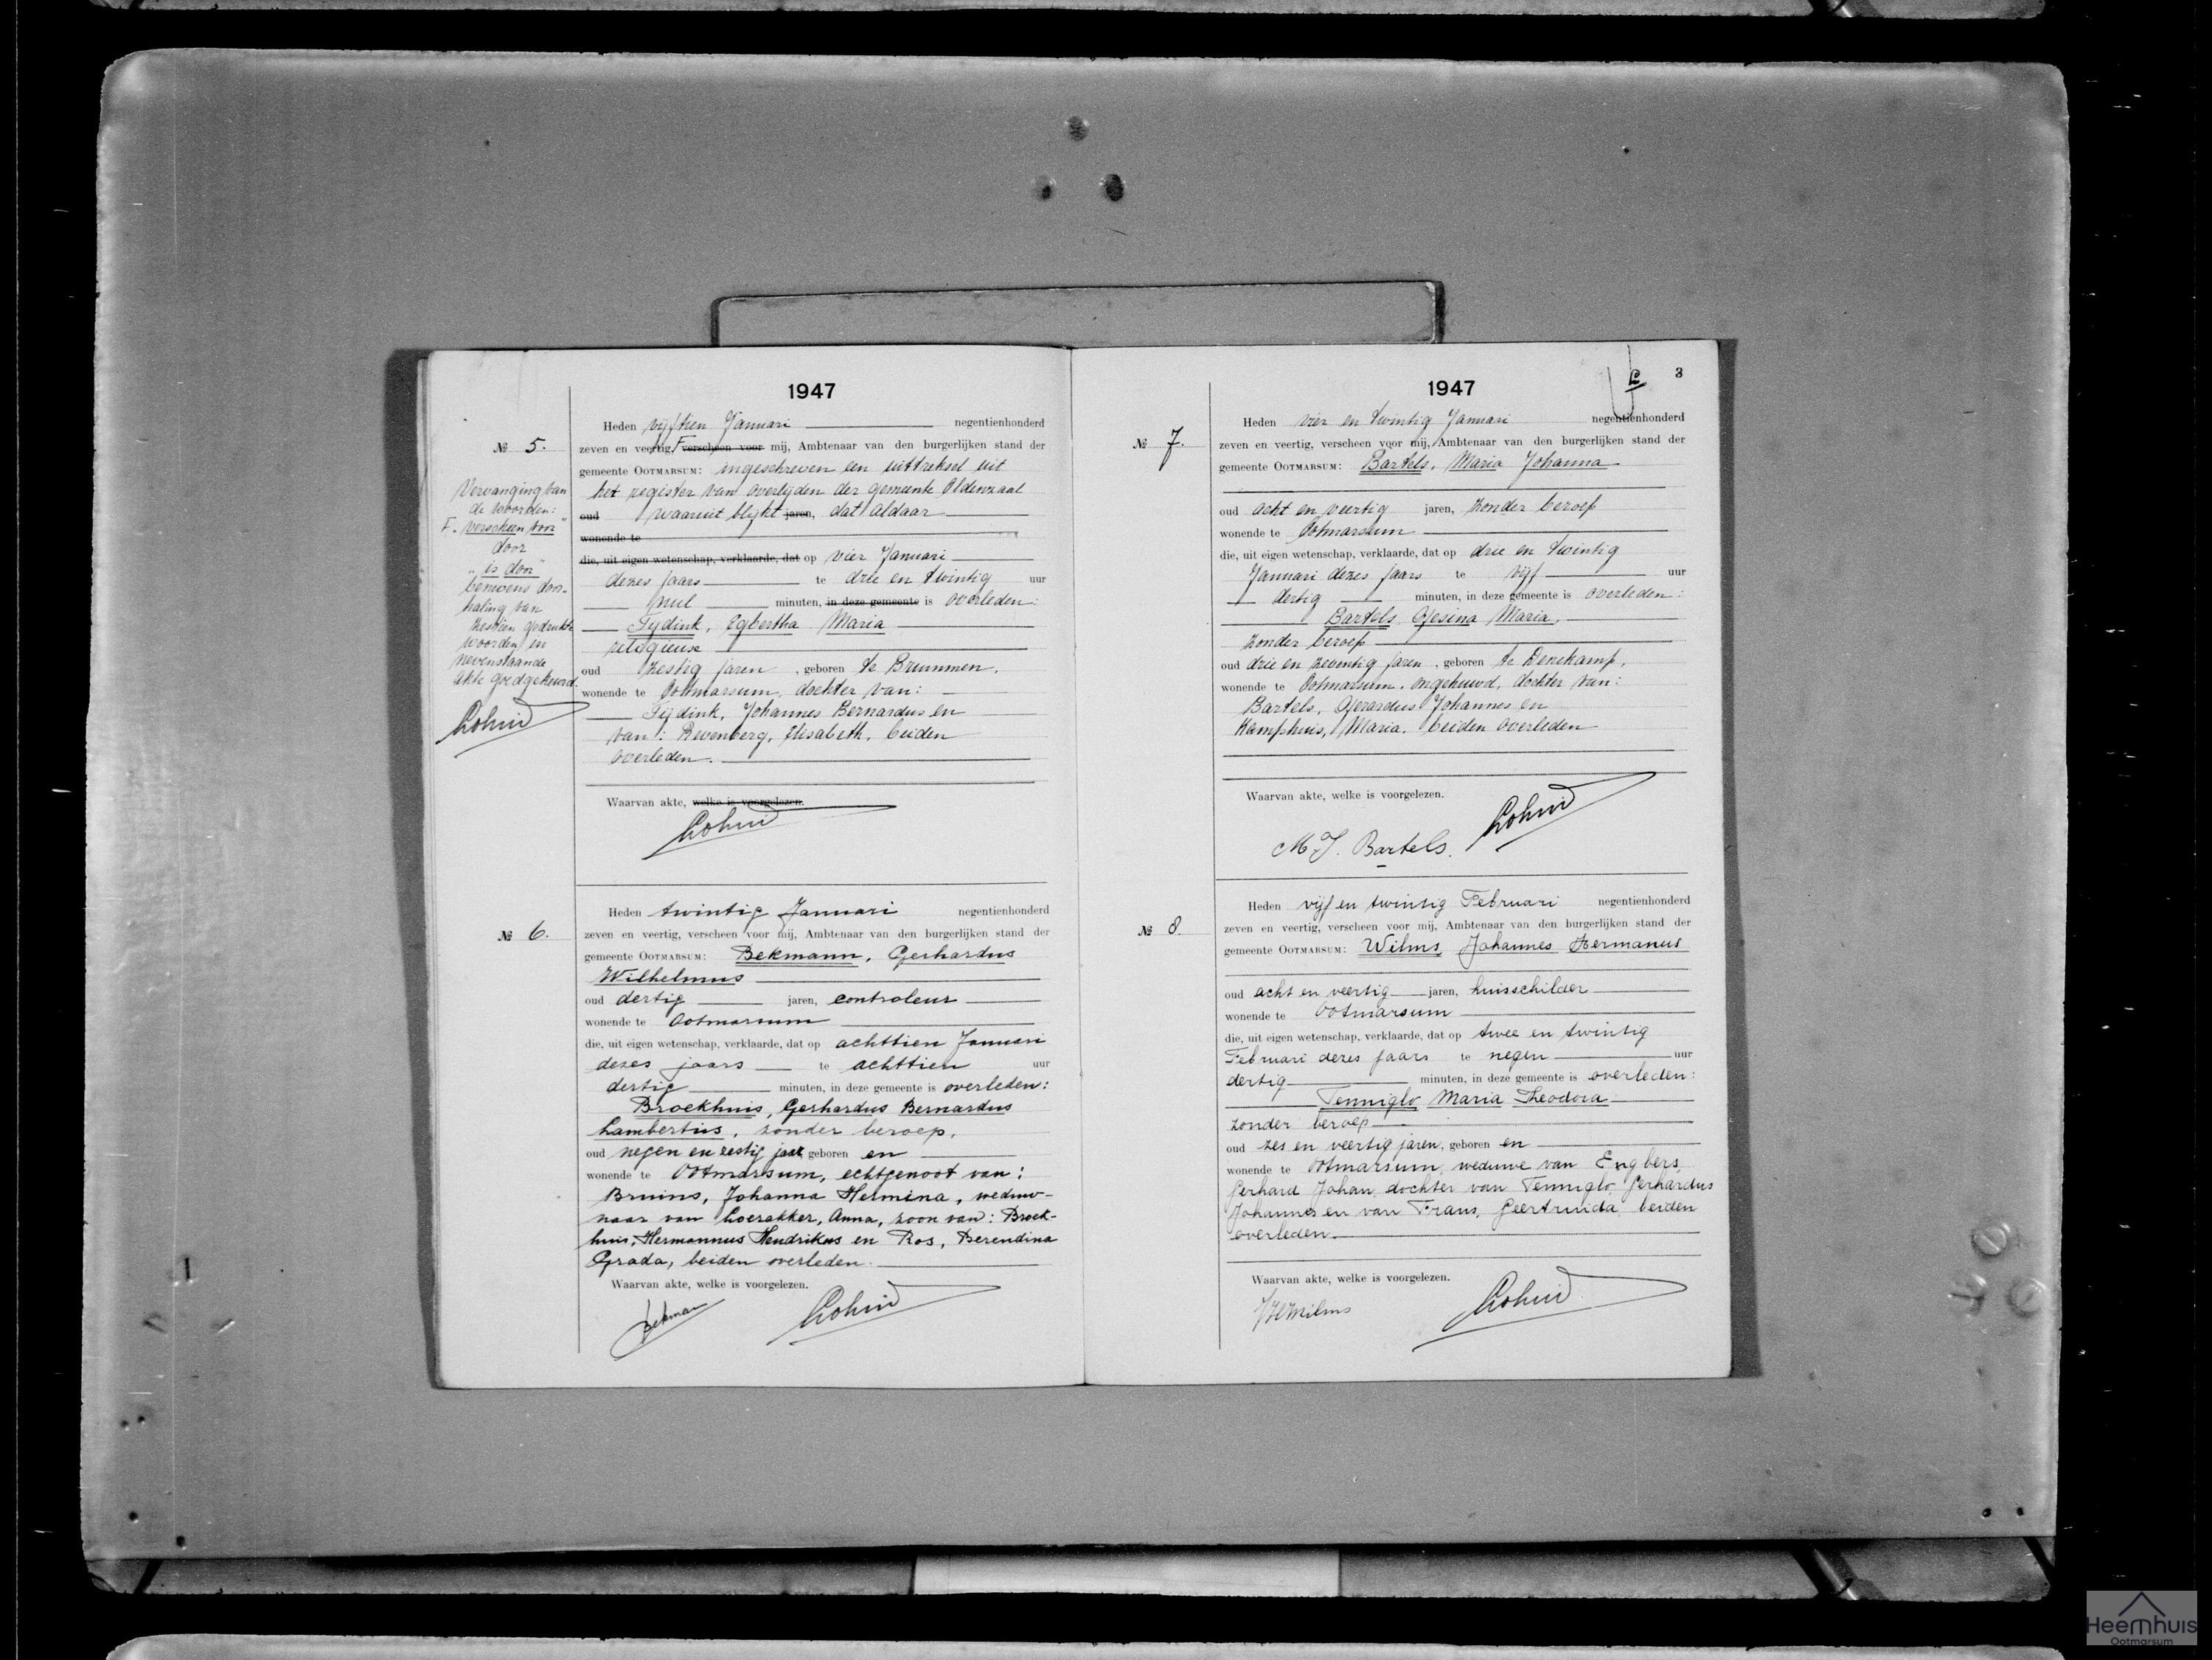 1947
Heden vijftien Januari negentienhonderd
№ 5.
zeven en veertig, F verscheen voor mij, Ambtenaar van den burgerlijken stand der
gemeente OOTMARSUM: ingeschreven een uittreksel uit
het register van overlijden der gemeente Oldenzaal
oud waaruit blijkt jaren, dat aldaar
wonende te
die, uit eigen wetenschap, verklaarde, dat op vier Januari
dezes jaars te drie en twintig uur
nul minuten, in deze gemeente is overleden:
Tijdink, Egbertha Maria
religieuse
oud zestig jaren, geboren te Brummen,
wonende te Ootmarsum, dochter van:
Tijdink, Johannes Bernardus en
van: Revenberg, Elisabeth, beiden
overleden.
Waarvan akte, welke is voorgelezen.
Vervanging van
de woorden:
F. "verscheen voor"
door
"is door"
benevens door-
haling van
zestien gedrukte
woorden en
nevenstaande
akte goedgekeurd.
Heden twintig Januari negentienhonderd
№ 6.
zeven en veertig, verscheen voor mij, Ambtenaar van den burgerlijken stand der
gemeente OOTMARSUM: Bekmann, Gerhardus
Wilhelmus
oud dertig jaren, controleur
wonende te Ootmarsum
die, uit eigen wetenschap, verklaarde, dat op achttien Januari
dezes jaars te achttien uur
dertig minuten, in deze gemeente is overleden:
Broekhuis, Gerhardus Bernardus
Lambertus, zonder beroep,
oud negen en zestig jaar, geboren en
wonende te Ootmarsum, echtgenoot van:
Bruins, Johanna Hermina, weduw-
naar van Loerakker, Anna, zoon van: Broek-
huis, Hermannus Hendrikus en Ros, Berendina
Grada, beiden overleden.
Waarvan akte, welke is voorgelezen.
Bekman
1947
3
Heden vier en twintig Januari negentienhonderd
№ 7.
zeven en veertig, verscheen voor mij, Ambtenaar van den burgerlijken stand der
gemeente OOTMARSUM: Bartels, Maria Johanna
oud acht en veertig jaren, zonder beroep
wonende te Ootmarsum
die, uit eigen wetenschap, verklaarde, dat op drie en twintig
Januari dezes jaars te vijf uur
dertig minuten, in deze gemeente is overleden:
Bartels, Gesina Maria,
zonder beroep
oud drie en zeventig jaren, geboren te Denekamp,
wonende te Ootmarsum, ongehuwd, dochter van:
Bartels, Gerardus Johannes en
Kamphuis, Maria, beiden overleden
Waarvan akte, welke is voorgelezen.
M J. Bartels.
Heden vijf en twintig Februari negentienhonderd
№ 8.
zeven en veertig, verscheen voor mij, Ambtenaar van den burgerlijken stand der
gemeente OOTMARSUM: Wilms, Johannes Hermanus
oud acht en veertig jaren, huisschilder
wonende te Ootmarsum
die, uit eigen wetenschap, verklaarde, dat op twee en twintig
Februari dezes jaars te negen uur
dertig minuten, in deze gemeente is overleden:
Tenniglo Maria Theodora
zonder beroep
oud zes en veertig jaren, geboren en
wonende te Ootmarsum, weduwe van Engbers,
Gerhard Johan, dochter van Tenniglo, Gerhardus
Johannes en van Frans, Geertruida, beiden
overleden.
Waarvan akte, welke is voorgelezen.
JHWilms
Heemhuis
Ootmarsum